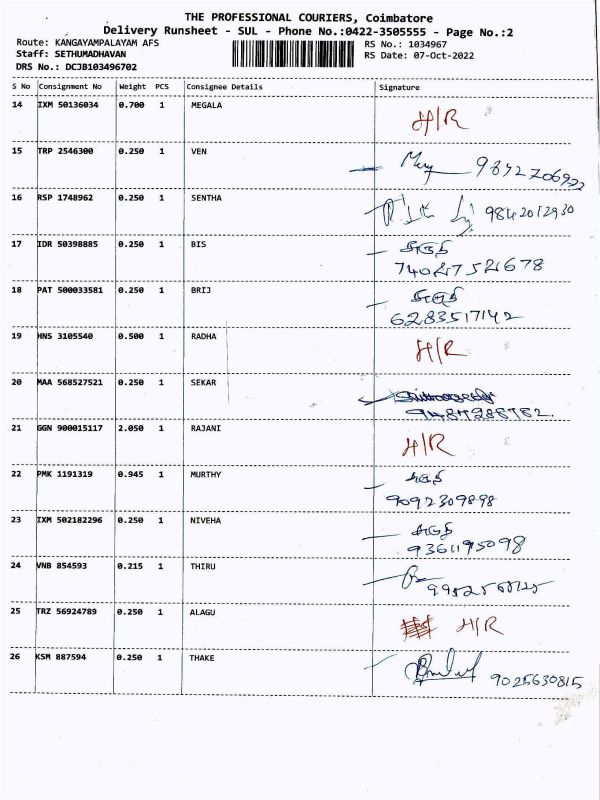 THE PROFESSIONAL COURIERS, Coimbatore
Delivery Runsheet - SUL - Phone No.:0422-3505555 - Page No.:2
Route: KANGAYAMPALAYAM AFS
RS No.: 1034967
Staff: SETHUMADHAVAN
RS Date: 07-Oct-2022
DRS No.: DCJB103496702
S No Consignment No Weight PCS Consignee Details Signature
14 IXM 50136034 0.700 1 MEGALA H/R
15 TRP 2546300 0.250 1 VEN
16 RSP 1748962 0.250 1 SENTHA 9842012930
17 IDR 50398885 0.250 1 BIS
18 PAT 500033581 0.250 1 BRIJ
6283517142
19 HNS 3105540 0.500 1 RADHA H/R
20 MAA 568527521 0.250 1 SEKAR
21 GGN 900015117 2.050 1 RAJANI H/R
22 PMK 1191319 0.945 1 MURTHY
9092309898
23 IXM 502182296 0.250 1 NIVEHA
9361195098
24 VNB 854593 0.215 1 THIRU
25 TRZ 56924789 0.250 1 ALAGU H/R
26 KSM 887594 0.250 1 THAKE 9025630815